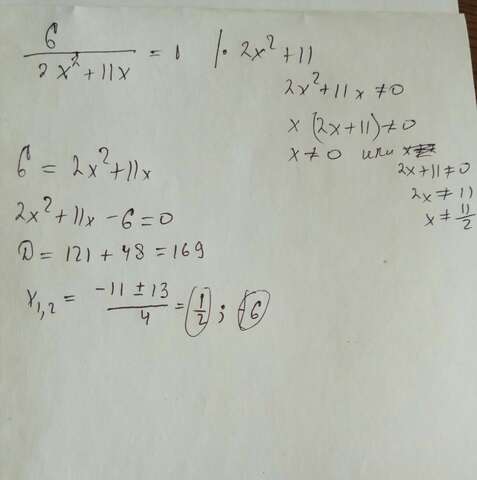 6/(2x²+11x) = 1 |· 2x²+11
2x²+11x ≠0
x(2x+11)≠0
x≠0 или x≠
2x+11≠0
2x≠11
x≠11/2
6 = 2x²+11x
2x²+11x-6=0
D = 121+48=169
x₁,₂ = (-11±13)/4 = 1/2; -6